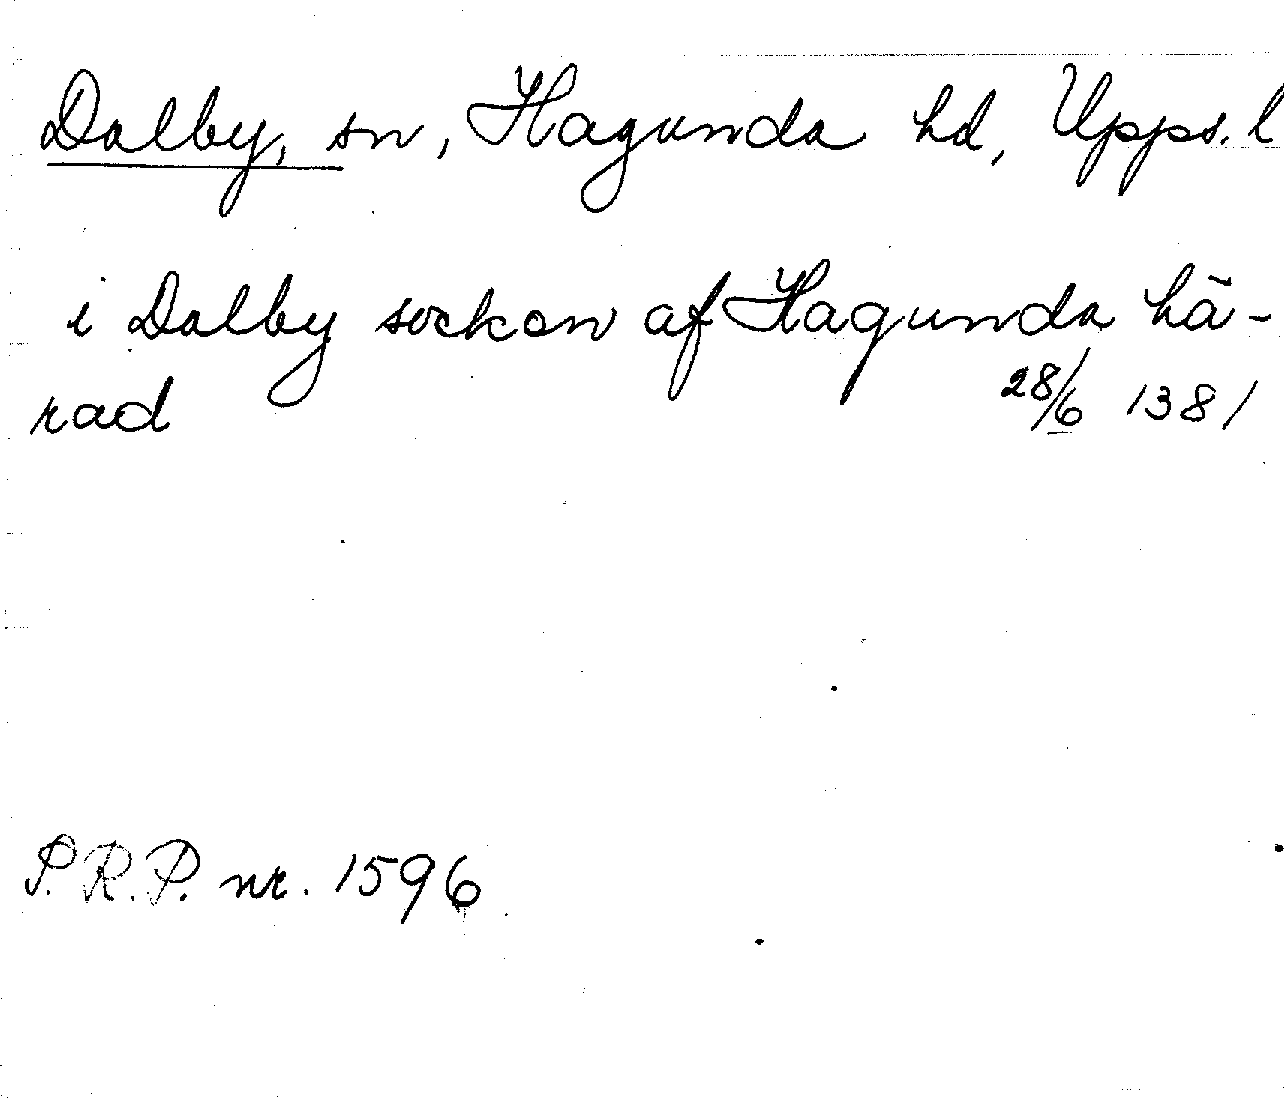 Dalby, sn, Hagunda hd, Upps. l
i Dalby socken af Hagunda hä-
rad 28/6 1381
P.R.P. nr. 1596